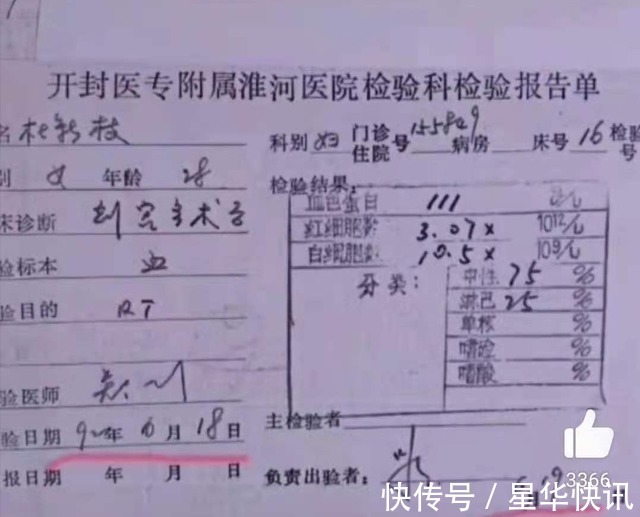 开封医专附属淮河医院检验科检验报告单
名 杜新枝 科别 妇 门诊住院号 155849 病房 床号 16 检验号
别 女 年龄 28 检验结果:
血色蛋白 111 g/L
床诊断 剖宫手术后
红细胞数 3.07× 10^12/L
白细胞数 10.5× 10^9/L
验标本 血
分类: 中性 75 %
淋巴 25 %
验目的 RT
单核 %
嗜碱 %
嗜酸 %
验医师
主检验者
验日期 92年6月18日
报日期 年 月 日 负责出验者:
3366
快传号/星华快讯